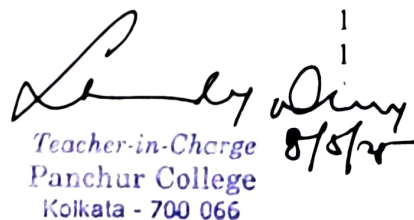 1
1
8/5/25
Teacher-in-Charge
Panchur College
Kolkata - 700 066